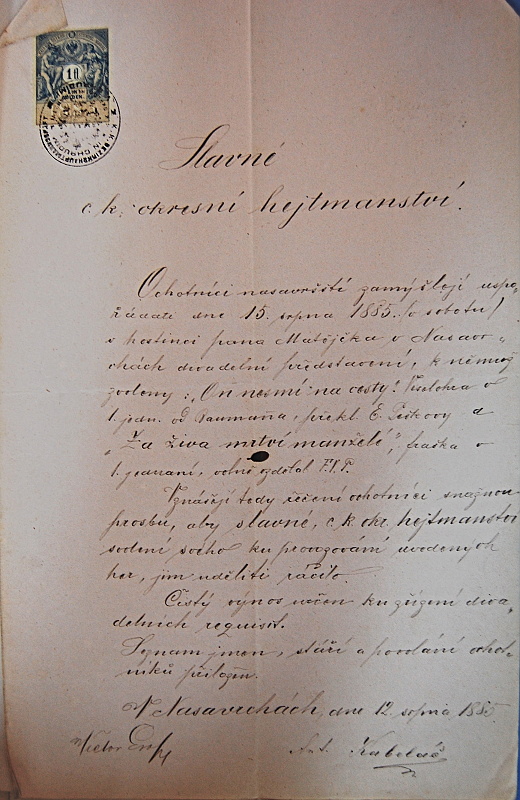 10
Slavné
c. k. okresní hejtmanství.
Ochotníci nasavrští zamýšlejí uspo-
řádati dne 15. srpna 1885. (v sobotu)
v hostinci pana Matějčka v Nasavr-
chách divadelní představení, k němuž
zvoleny: „On nesmí na cesty! Veselohra v
1. jedn. od Baumanna, překl. E. Peškovy a
„Za živa mrtví manželé", fraška v
1. jednání, volně vzdělal F.Š.P.
Vznášejí tedy řečení ochotníci snažnou
prosbu, aby slavné, c. k. okr. hejtmanství
svolení svého ku provozování uvedených
her, jim uděliti ráčilo.
Čistý výnos určen ku zřízení diva-
delních requisit.
Seznam jmen, stáří a povolání ochot-
níků přiložen.
V Nasavrchách, dne 12. srpna 1885.
Ant. Kubeláč